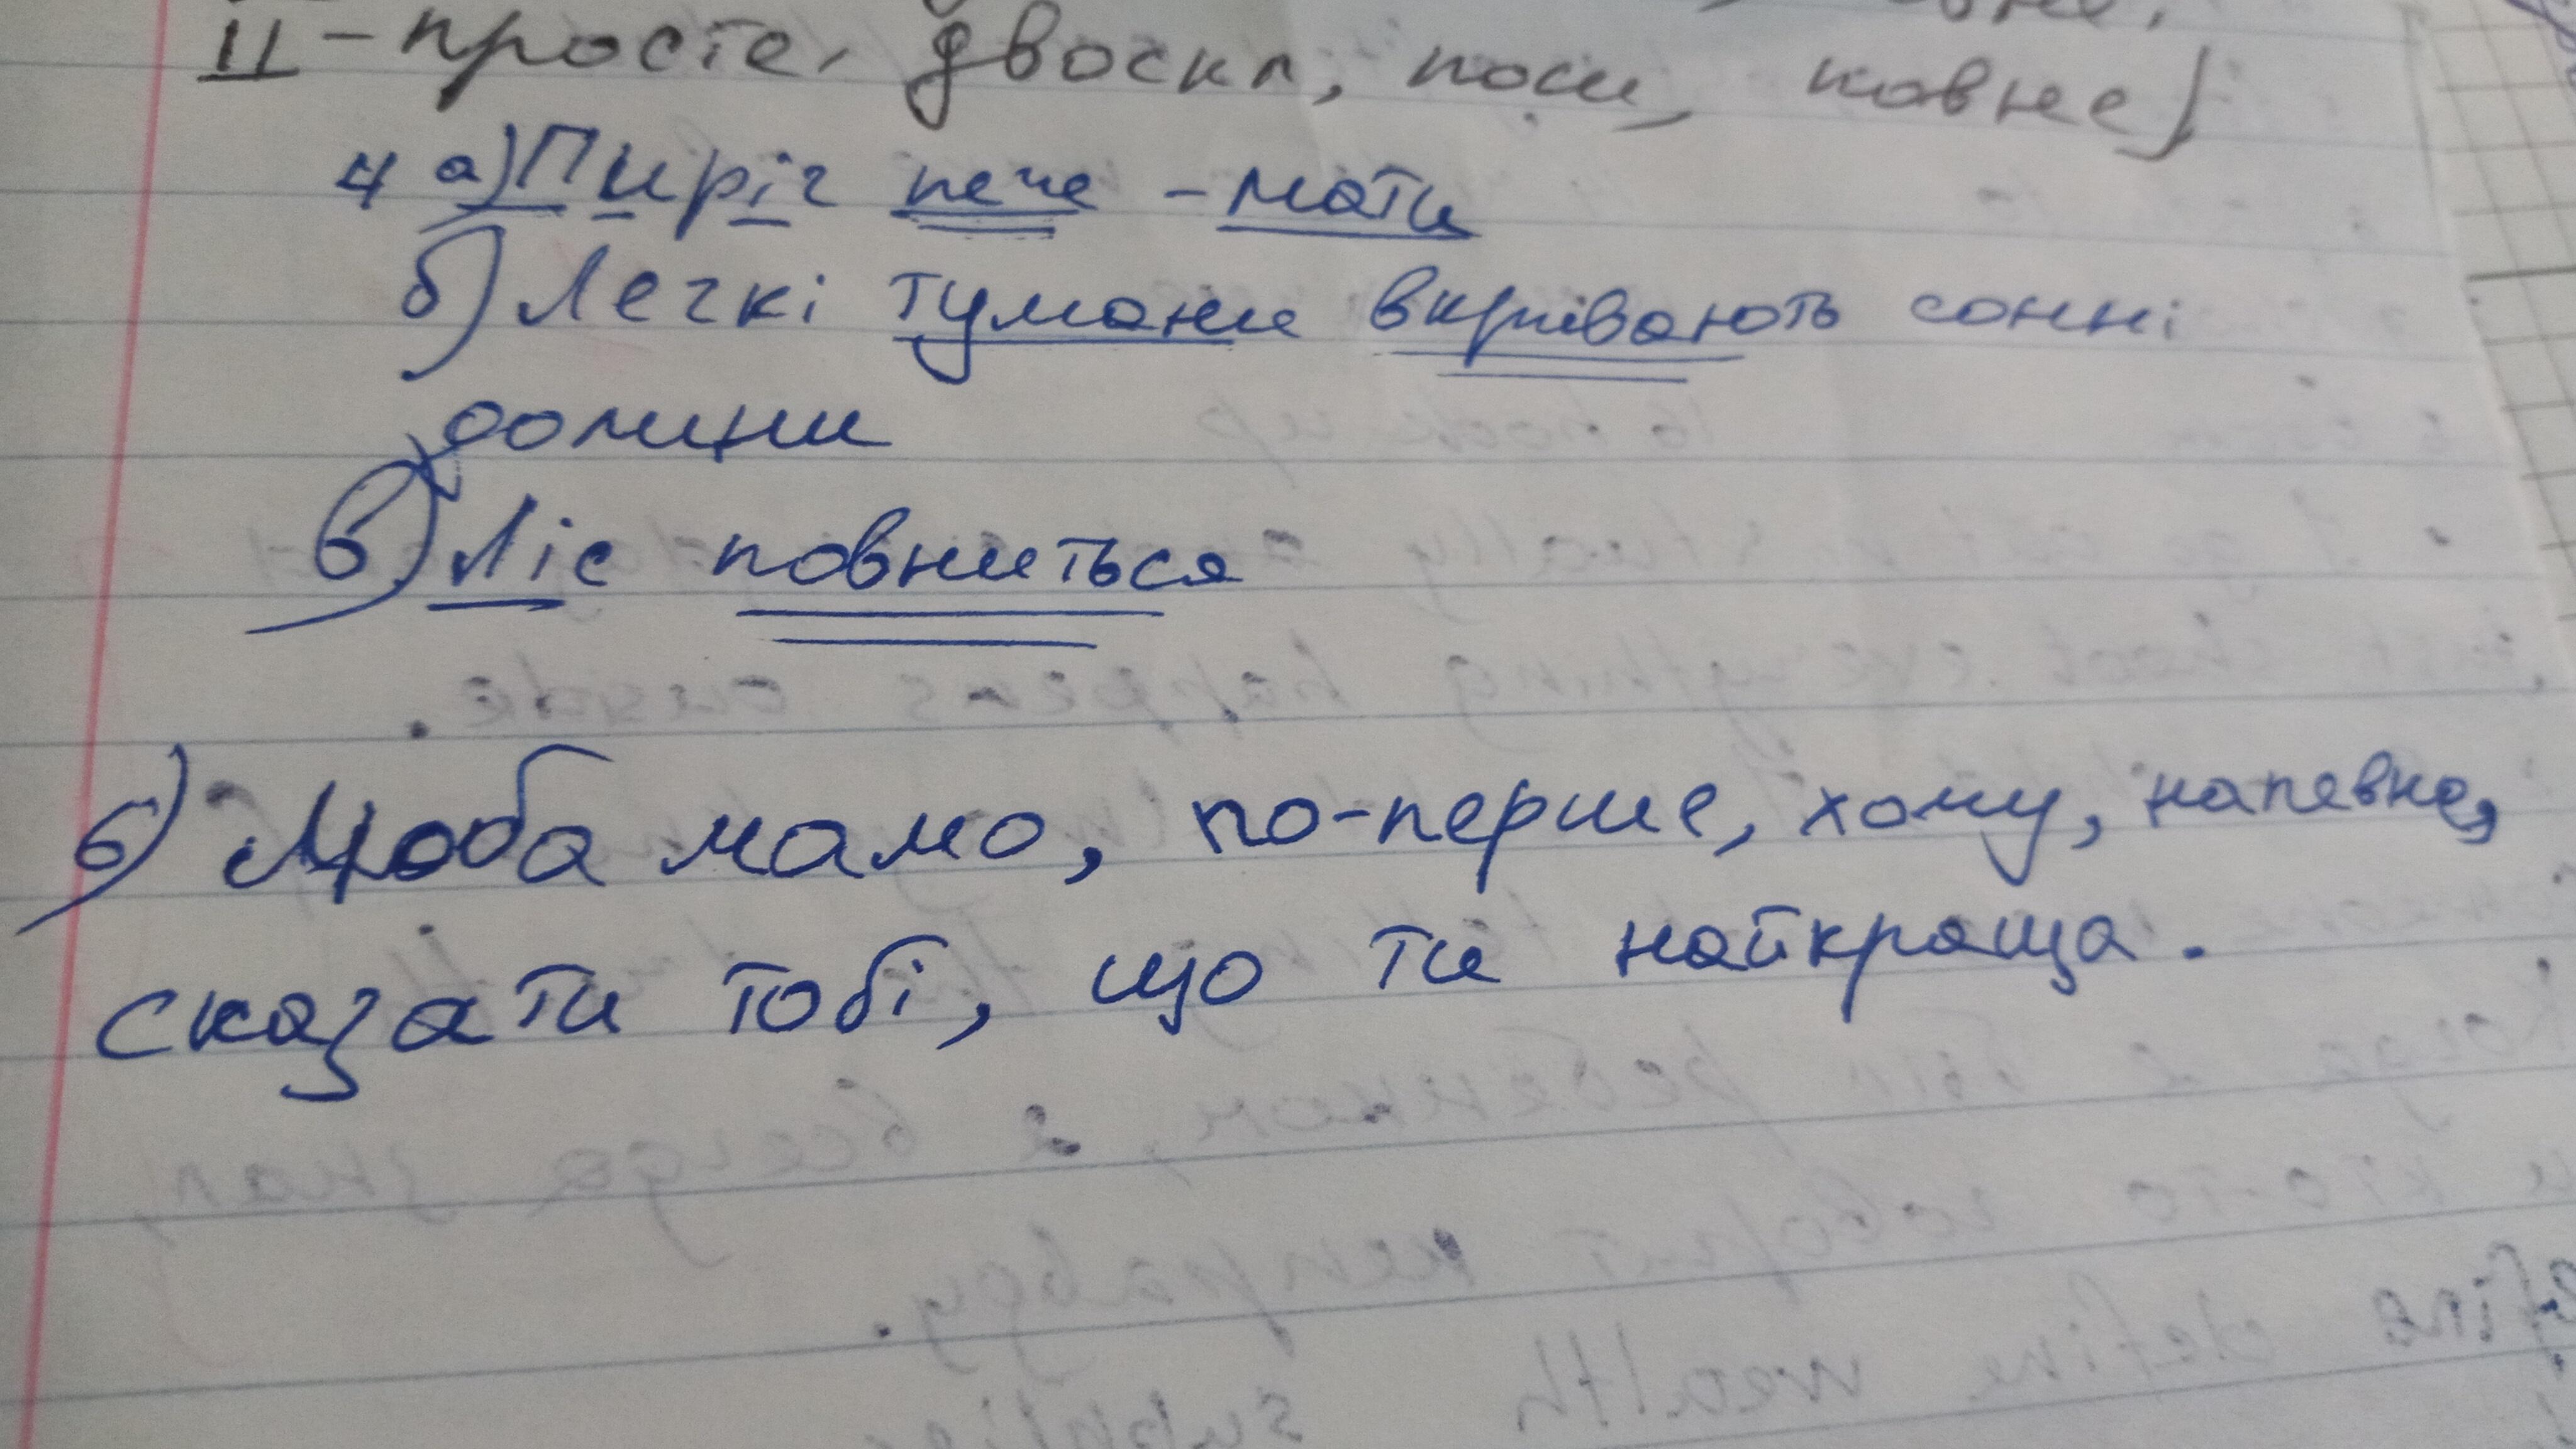 II - просте, двоскл, пош, повне)
4 а) Пиріг пече - мати
б) Легкі тумани вкривають сонні
долини
в) Ліс повниться
6) Люба мамо, по-перше, хочу, напевно,
сказати тобі, що ти найкраща.